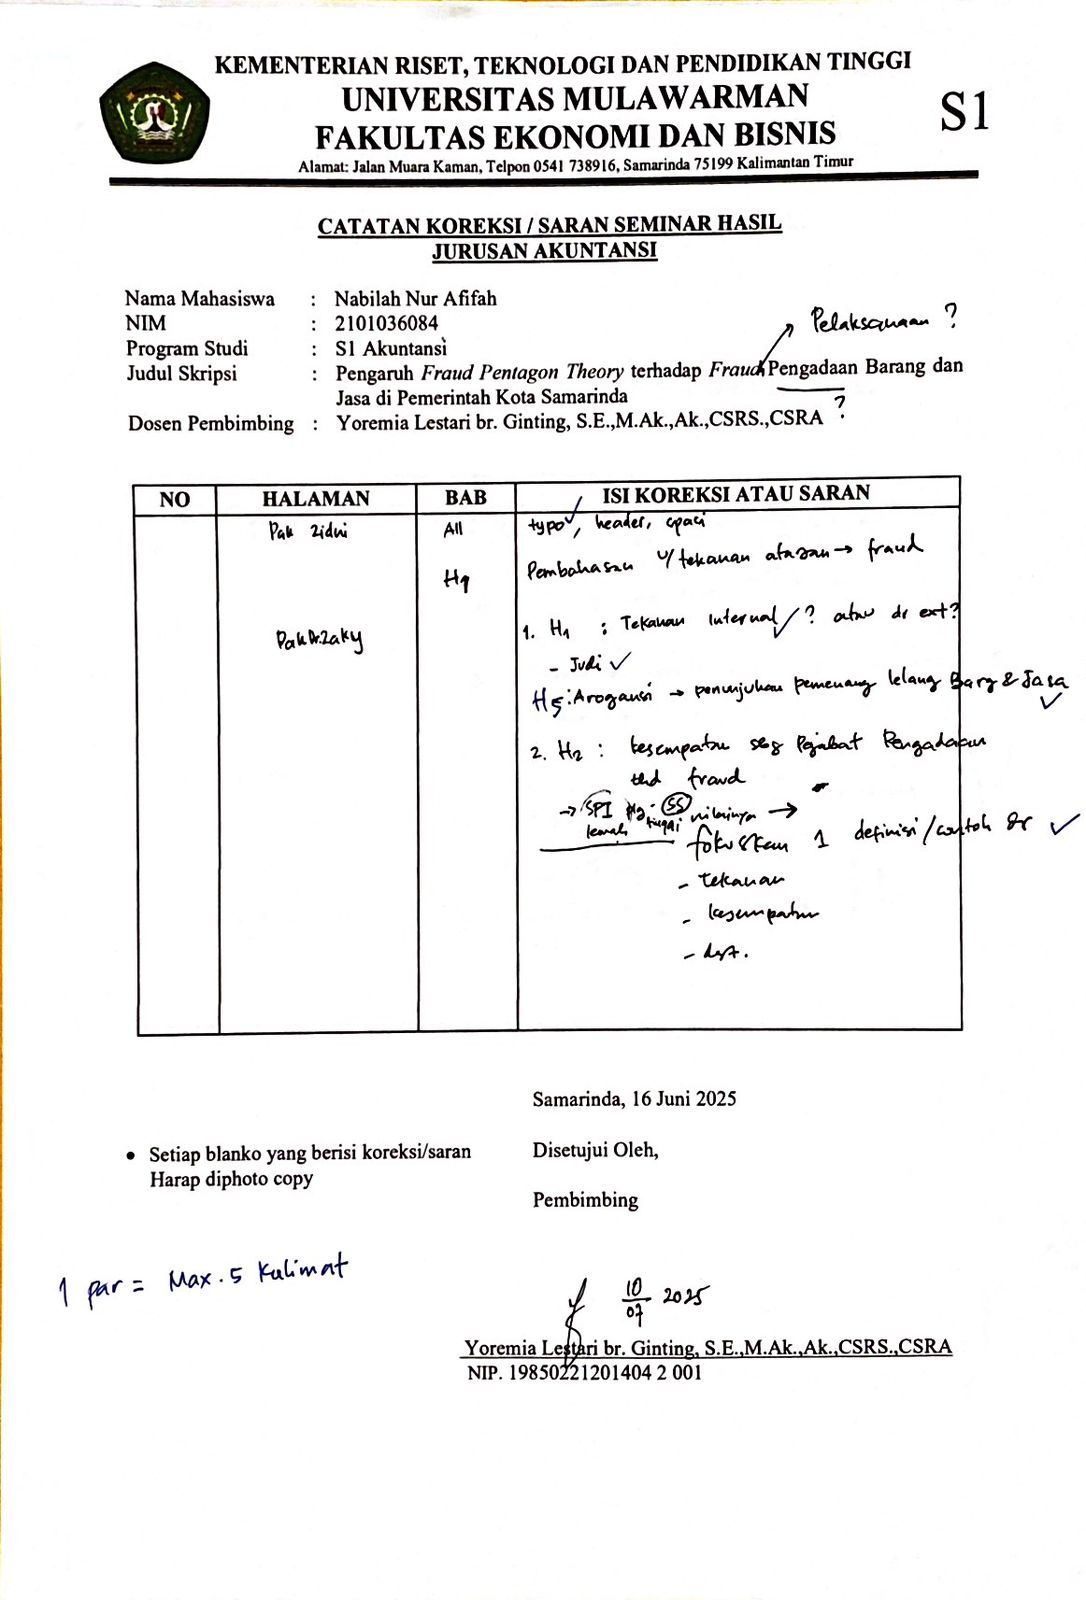 KEMENTERIAN RISET, TEKNOLOGI DAN PENDIDIKAN TINGGI
UNIVERSITAS MULAWARMAN
FAKULTAS EKONOMI DAN BISNIS
Alamat: Jalan Muara Kaman, Telpon 0541 738916, Samarinda 75199 Kalimantan Timur
S1
CATATAN KOREKSI / SARAN SEMINAR HASIL
JURUSAN AKUNTANSI
Nama Mahasiswa : Nabilah Nur Afifah
NIM : 2101036084
Pelaksanaan ?
Program Studi : S1 Akuntansi
Judul Skripsi : Pengaruh Fraud Pentagon Theory terhadap Fraud Pengadaan Barang dan
Jasa di Pemerintah Kota Samarinda
?
Dosen Pembimbing : Yoremia Lestari br. Ginting, S.E.,M.Ak.,Ak.,CSRS.,CSRA
NO HALAMAN BAB ISI KOREKSI ATAU SARAN
Pak Zidni All typo ✓, header, spasi
Pembahasan u/ tekanan atasan → fraud
Pak Dr. Zaky 1. H1 : Tekanan Internal ✓ ? atau dr ext?
- Judi ✓
H5: Arogansi → penunjukan pemenang lelang Barg & Jasa ✓
2. H2 : kesempatan sbg Pejabat Pengadaan
thd fraud
→ SPI SS nilainya →
lemah tinggi
fokuskan 1 definisi/contoh dr ✓
- tekanan
- kesempatan
- dst.
Samarinda, 16 Juni 2025
• Setiap blanko yang berisi koreksi/saran
Harap diphoto copy
Disetujui Oleh,
Pembimbing
1 par = Max. 5 Kalimat
10/07 2025
Yoremia Lestari br. Ginting, S.E.,M.Ak.,Ak.,CSRS.,CSRA
NIP. 19850221201404 2 001